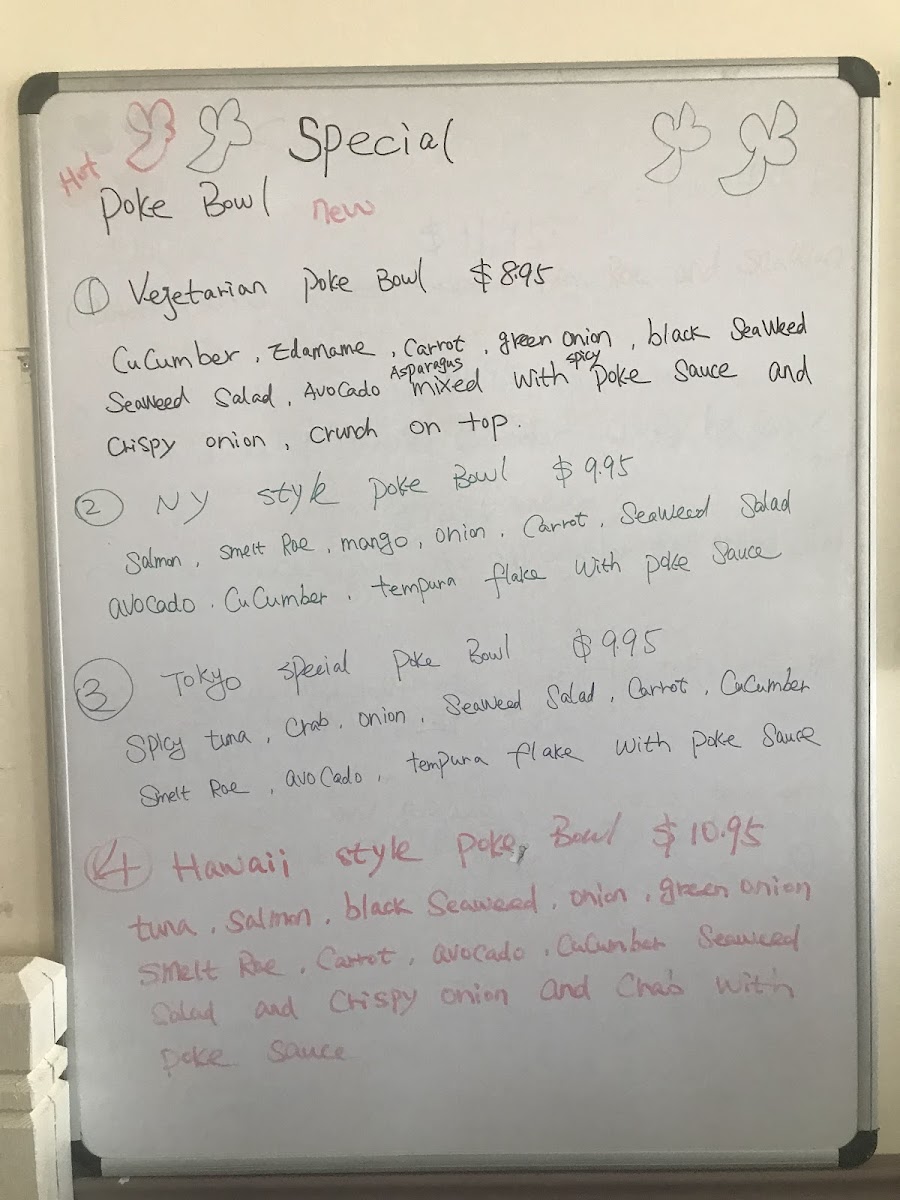 Special
Hot
Poke Bowl new
① Vegetarian Poke Bowl $8.95
Cucumber, Edamame, Carrot, green onion, black Seaweed
Asparagus spicy
Seaweed Salad, Avocado mixed with Poke Sauce and
Crispy onion, crunch on top.
② NY style poke Bowl $9.95
Salmon, Smelt Roe, mango, onion, Carrot, Seaweed Salad
avocado. Cucumber, tempura flake with poke Sauce
③ Tokyo special poke Bowl $9.95
Spicy tuna, Crab, onion, Seaweed Salad, Carrot, Cucumber
Smelt Roe, avocado, tempura flake with poke Sauce
④ Hawaii style poke Bowl $10.95
tuna, Salmon, black Seaweed, onion, green onion
Smelt Roe, Carrot, avocado, Cucumber Seaweed
Salad and Crispy onion and with
poke sauce